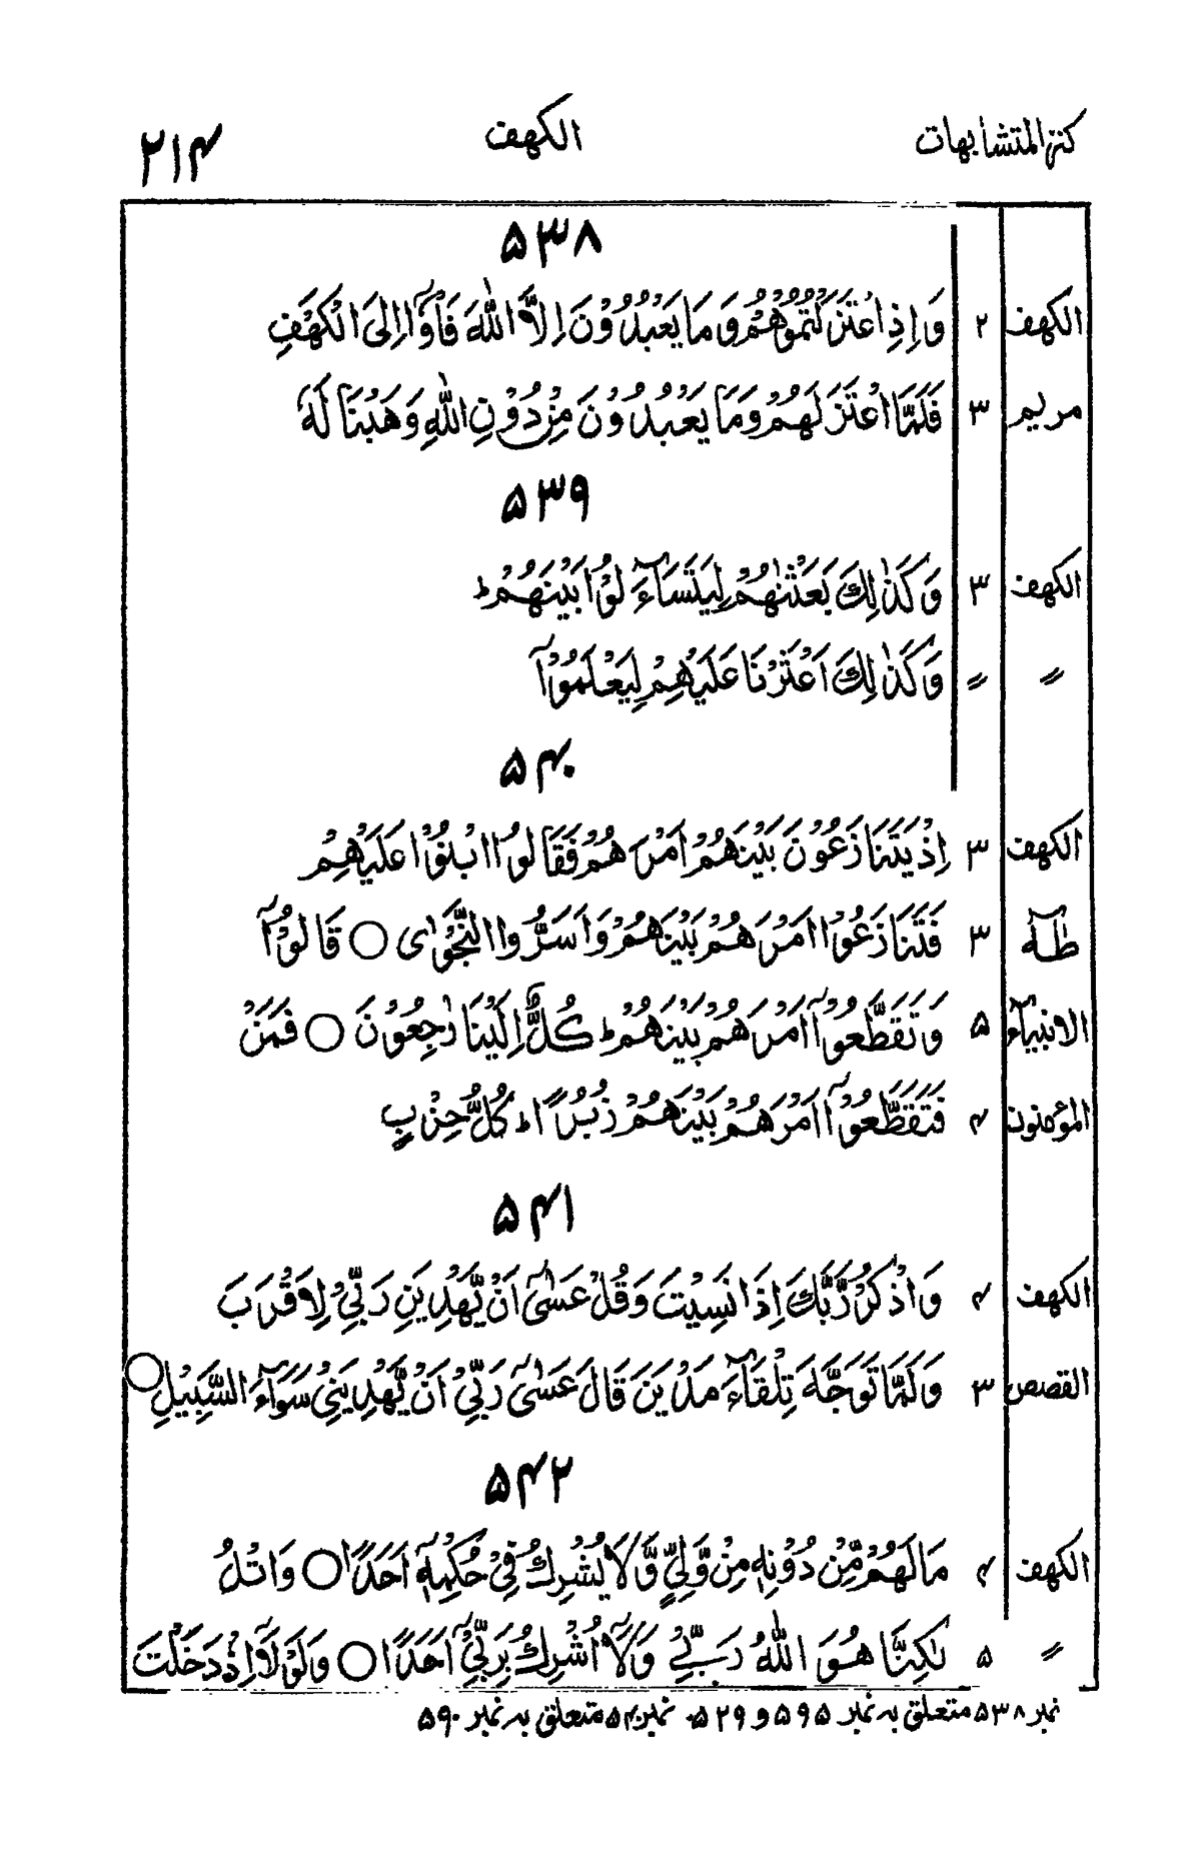 کنز المتشابهات الکهف ۲۱۴
۵۳۸
الکهف ۲ وَاِذِ اعْتَزَلْتُمُوْهُمْ وَمَا يَعْبُدُوْنَ اِلَّا اللّٰهَ فَاْوٗۤا اِلَی الْکَهْفِ
مریم ۳ فَلَمَّا اعْتَزَلَهُمْ وَمَا يَعْبُدُوْنَ مِنْ دُوْنِ اللّٰهِ وَهَبْنَا لَهٗ
۵۳۹
الکهف ۳ وَکَذٰلِكَ بَعَثْنٰهُمْ لِيَتَسَآءَلُوْا بَيْنَهُمْ ؕ
〃 〃 وَکَذٰلِكَ اَعْثَرْنَا عَلَيْهِمْ لِيَعْلَمُوْۤا
۵۴۰
الکهف ۳ اِذْ يَتَنَازَعُوْنَ بَيْنَهُمْ اَمْرَهُمْ فَقَالُوا ابْنُوْا عَلَيْهِمْ
طٰهٰ ۳ فَتَنَازَعُوْۤا اَمْرَهُمْ بَيْنَهُمْ وَاَسَرُّوا النَّجْوٰی ○ قَالُوْۤا
الانبیآء ۵ وَتَقَطَّعُوْۤا اَمْرَهُمْ بَيْنَهُمْ ؕ کُلٌّ اِلَيْنَا رٰجِعُوْنَ ○ فَمَنْ
المؤمنون ۴ فَتَقَطَّعُوْۤا اَمْرَهُمْ بَيْنَهُمْ زُبُرًا ؕ کُلُّ حِزْبٍ
۵۴۱
الکهف ۴ وَاذْکُرْ رَّبَّكَ اِذَا نَسِيْتَ وَقُلْ عَسٰۤی اَنْ يَّهْدِيَنِ رَبِّیْ لِاَقْرَبَ
القصص ۳ وَلَمَّا تَوَجَّهَ تِلْقَآءَ مَدْيَنَ قَالَ عَسٰی رَبِّیْۤ اَنْ يَّهْدِيَنِیْ سَوَآءَ السَّبِيْلِ ○
۵۴۲
الکهف ۴ مَا لَهُمْ مِّنْ دُوْنِهٖ مِنْ وَّلِیٍّ وَّلَا يُشْرِكُ فِیْ حُکْمِهٖۤ اَحَدًا ○ وَاتْلُ
〃 ۵ لٰکِنَّا هُوَ اللّٰهُ رَبِّیْ وَلَاۤ اُشْرِكُ بِرَبِّیْۤ اَحَدًا ○ وَلَوْلَاۤ اِذْ دَخَلْتَ
نمبر ۵۳۸ متعلق بہ نمبر ۵۹۵ و ۵۲۹۔ نمبر ۵۴۰ متعلق بہ نمبر ۵۹۰